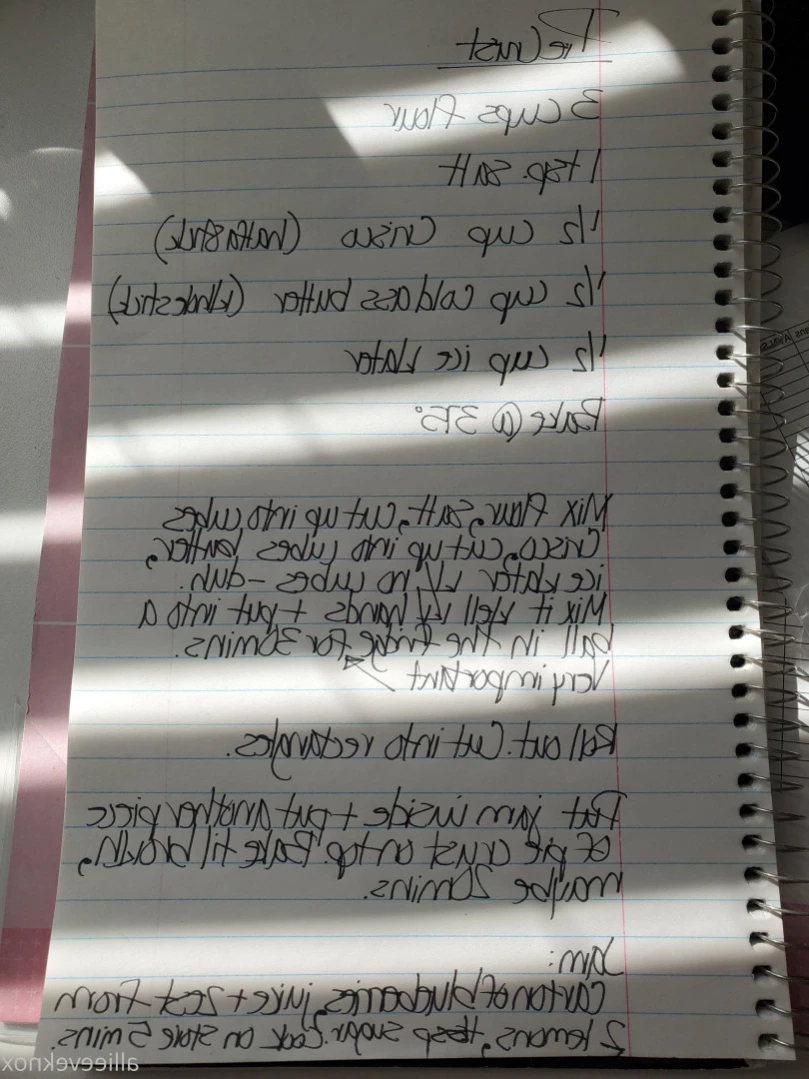 Pie Crust
3 cups flour
1 tsp. salt
1/2 cup Crisco (half a stick)
1/2 cup cold ass butter (whole stick)
1/2 cup ice water
Bake @ 375°
Mix flour, salt, cut up into cubes
Crisco, cut up into cubes butter,
ice water w/ no cubes - duh.
Mix it well w/ hands + put into a
ball in the fridge for 30 mins.
Very important
Roll out. Cut into rectangles.
Put jam inside + put another piece
of pie crust on top. Bake til brown,
maybe 20 mins.
Jam:
Carton of blueberries, juice + zest from
2 lemons, tsp sugar. Cook on stove 5 mins.
allieeveknox